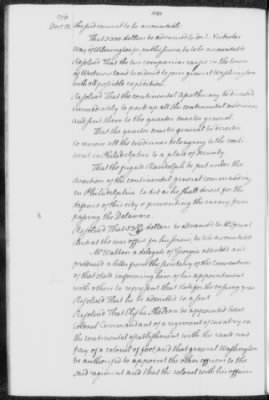 Decr 12. the said council to be accountable
That 5000 dollars be advanced to doct. Nicholas
Way of Wilmington for public service, he to be accountable
Resolved That the two companies raised in the towns
of be ordered to join general Washington
with all possible expedition.
Resolved That the continental apothecary be directed
immediately to pack up all the continental medicines
and send them to the quarter master general.
That the quarter master general be directed
to remove all the medicines belonging to the conti-
nent in Philadelphia to a place of security
That the frigate Randolph be put under the
direction of the continental general commanding
in Philadelphia to act as he shall direct for the
defence of this city & preventing the enemy from
passing the Delaware.
Resolved That 500 dollars be advanced to
clerk at the war office for his services, he to be accountable
Mr Walton a delegate of Georgia attended and
produced a letter from the secretary of the convention
of that state informing him of his appointment
with others to represent that state for the ensuing year
Resolved That he be admitted to a seat
Resolved That Elisha Sheldon be appointed lieut
Colonel Commandant of a regiment of cavalry on
the continental establishment with the rank and
pay of a colonel of foot, and that general Washington
be authorised to appoint the other officers to the
said regiment and that the colonel with his officers